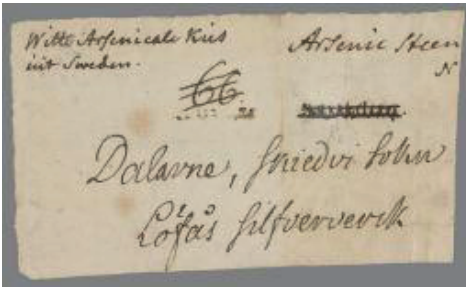 Witte Arsenicale Kies
uit Sweden.
Arsenic Steen
N
66
Dalarne, Skiedvi Sokn
Löfås Silfververck